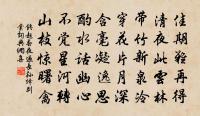 佳期難再得
清夜此雲林
帶竹新泉冷
穿花片月深
含毫凝逸思
酌水話幽心
不覺星河轉
山枝驚曙禽
錢起春夜過長孫繹別
業詞典網